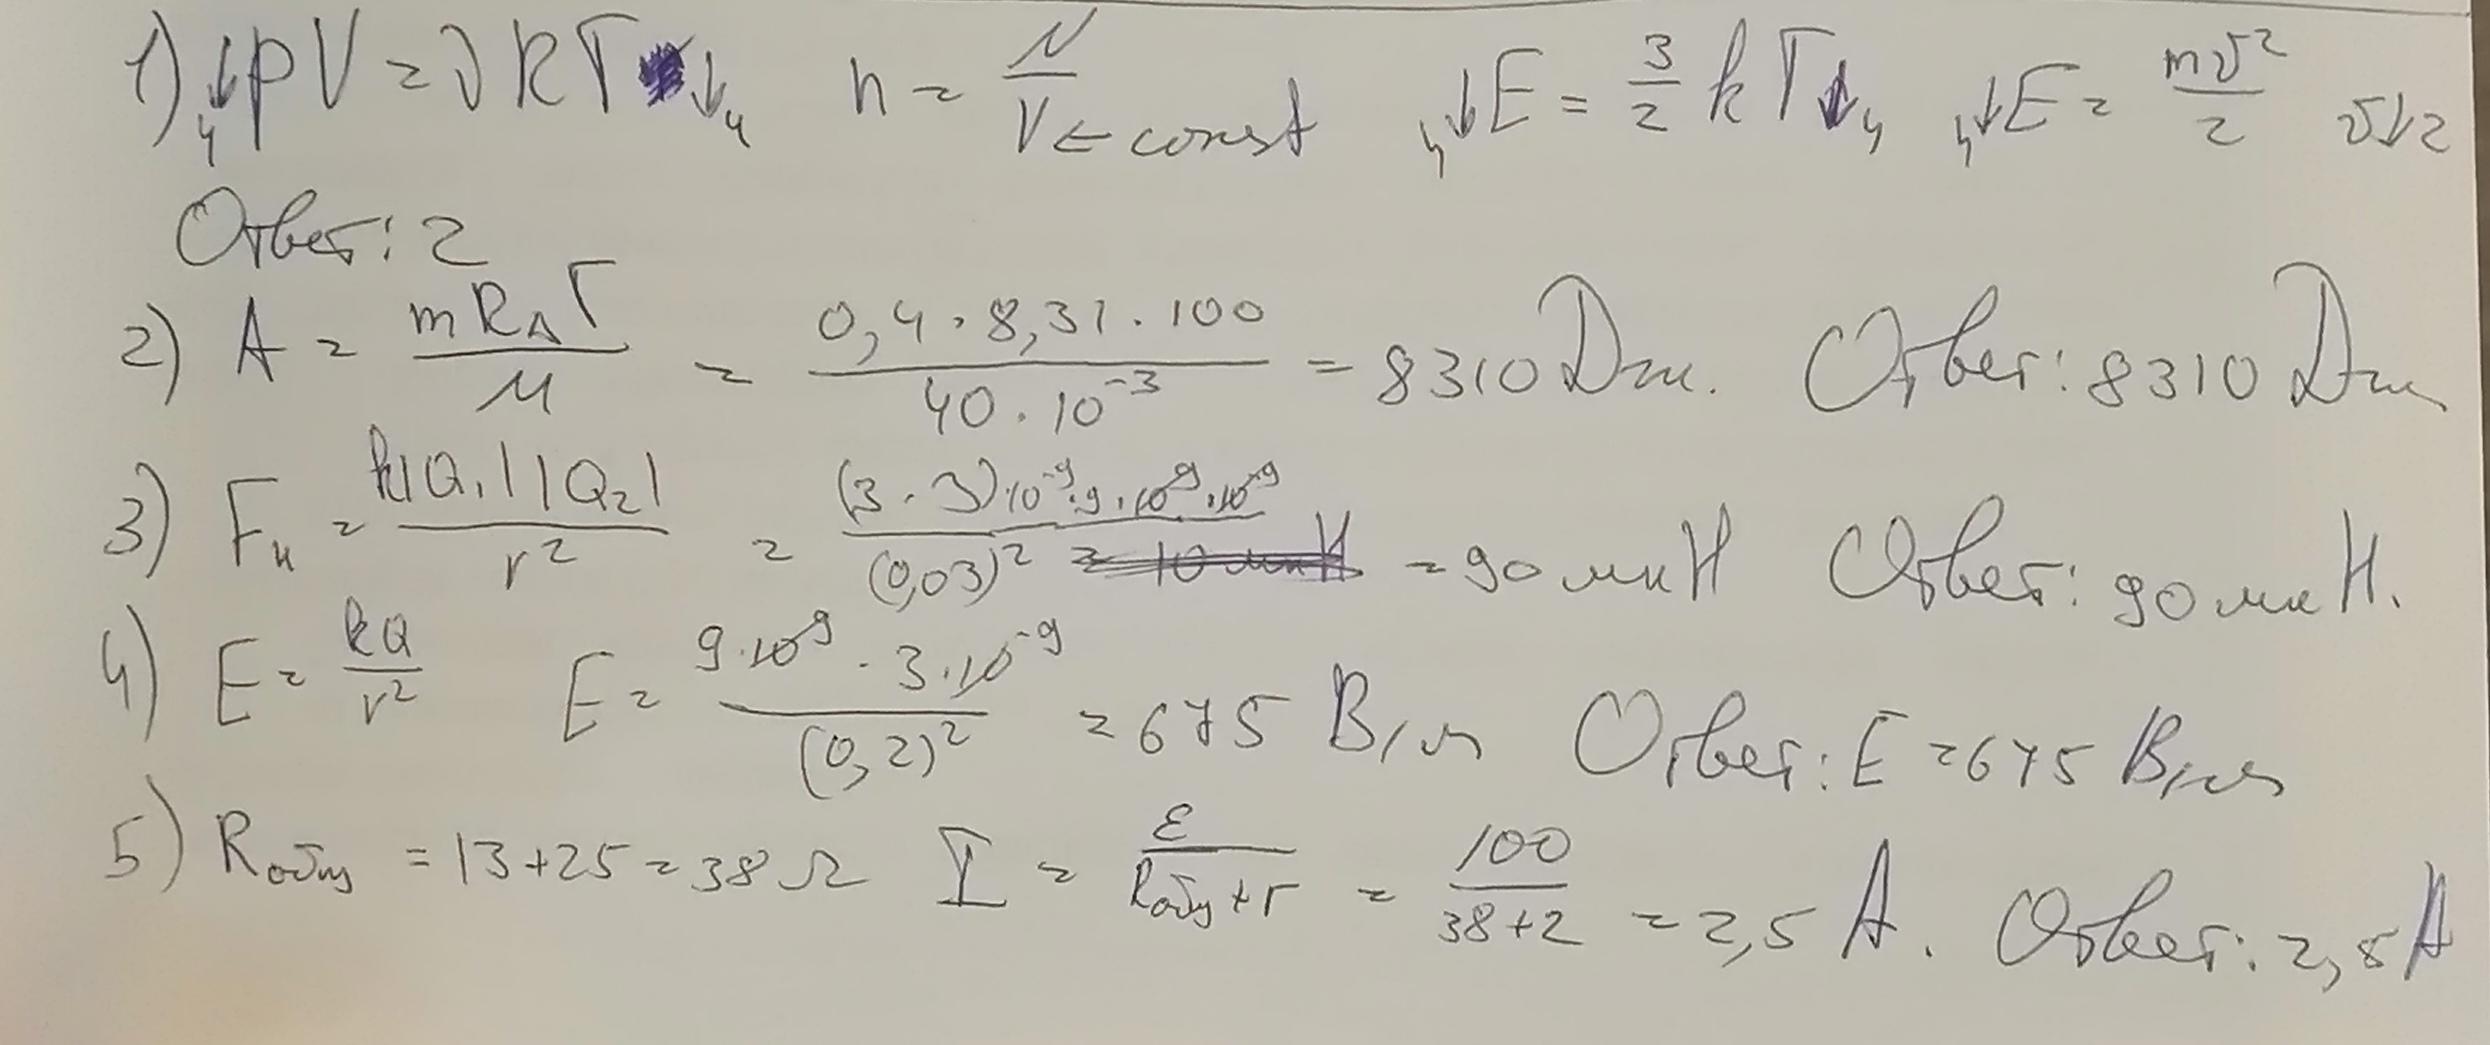 1) ₄↓pV = νRT ↓₄ n = N/V ← const ₄↓E = 3/2 kT↓₄ ₄↓E = mv²/2 v↓2
Ответ: 2
2) A = mRΔT/M = 0,4·8,31·100/40·10⁻³ = 8310 Дж. Ответ: 8310 Дж
3) Fк = k|Q₁||Q₂|/r² = (3·3)·10⁻⁹·9·10⁹·10⁻⁹/(0,03)² = 90 мкН Ответ: 90 мкН.
4) E = kQ/r² E = 9·10⁹·3·10⁻⁹/(0,2)² = 675 В/м Ответ: E = 675 В/м
5) Rобщ = 13+25 = 38 Ω I = ε/Rобщ+r = 100/38+2 = 2,5 А. Ответ: 2,5 А